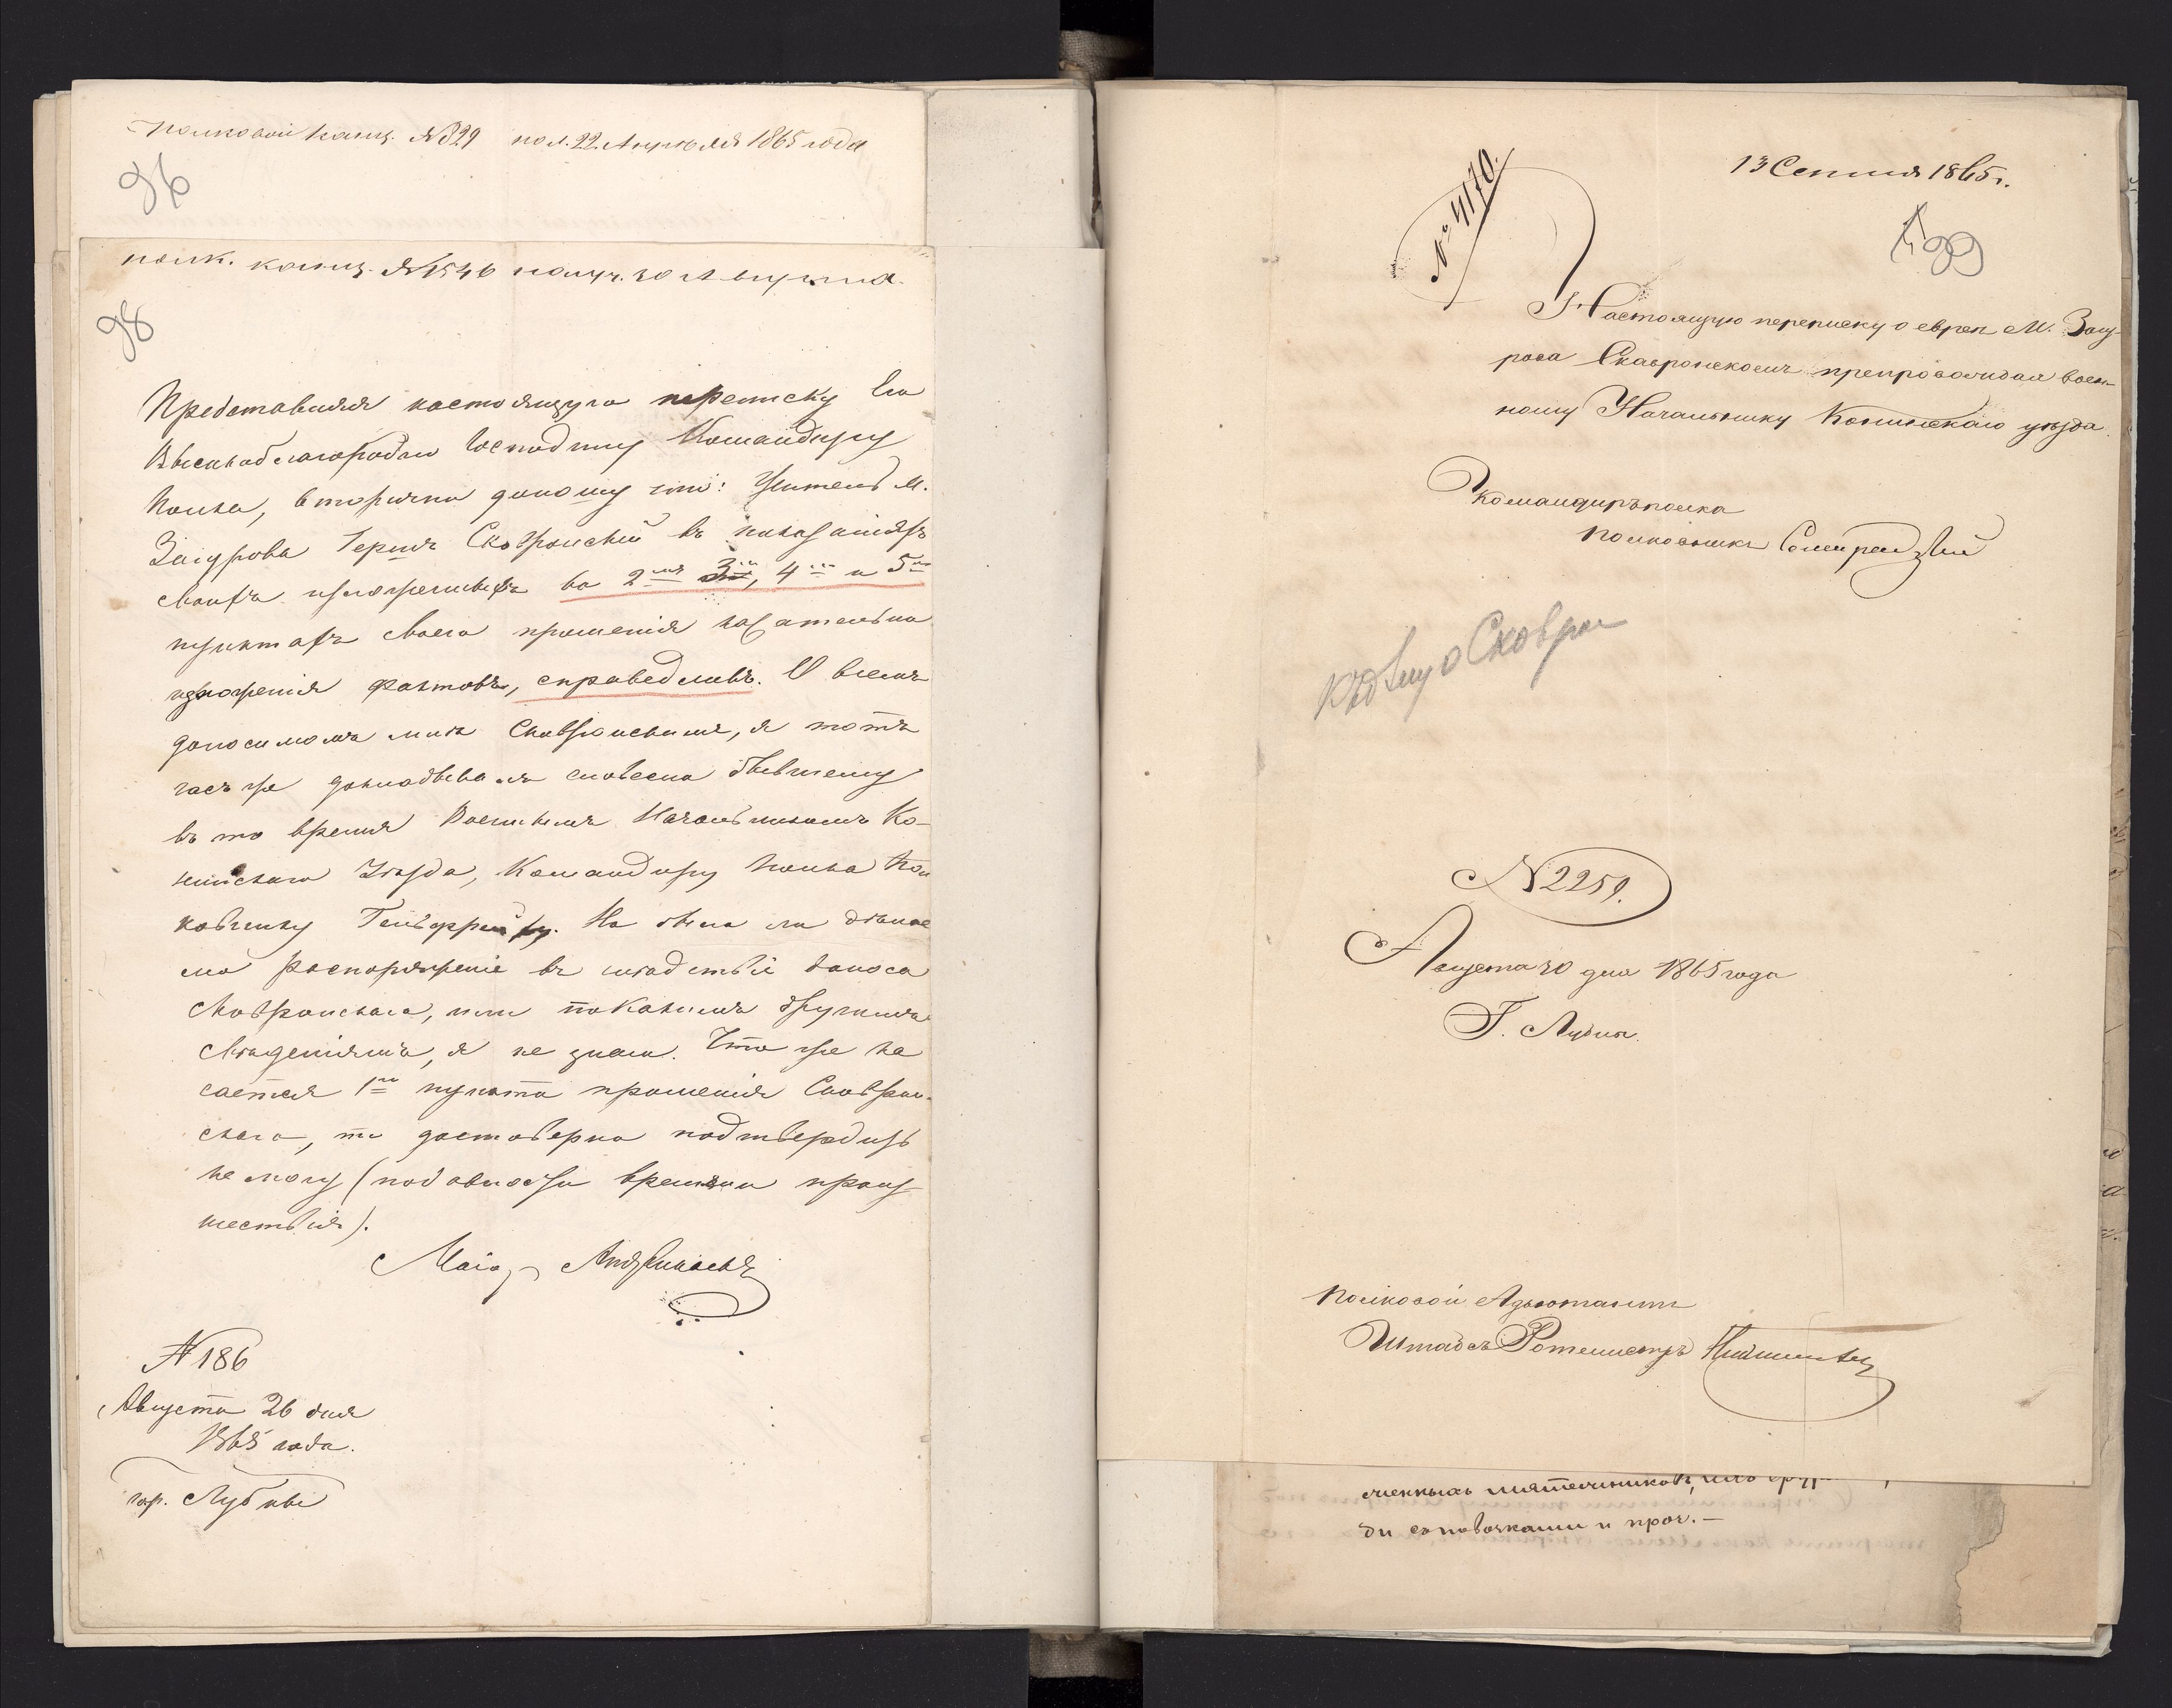 Полковой канц. №829 пол. 22 Апреля 1865 года
96
полк. канц. №1546 получ. 30 Августа.
98
Представляя настоящую переписку Его
Высокоблагородію Господину Командиру
полка, вторично доношу что: Житель м.
Загурова Герша Сковронскій въ показаніяхъ
своихъ изложенныхъ во 2мъ 3мъ, 4мъ и 5мъ
пунктахъ своего прошенія касательно
изложенія фактовъ, справедливъ. О всемъ
доносимомъ мнѣ Сковронскимъ, я тотъ
часъ же докладывалъ словесно бывшему
въ то время Военнымъ Начальникомъ Ко-
нинскаго Уѣзда, Командиру полка Пол
ковнику Но было ли дѣлае
мо распоряженіе въ слѣдствіе доноса
Сковронскаго, или по какимъ другимъ
свѣденіямъ, я не знаю. Что же ка
сается 1го пункта прошенія Сковрон-
скаго, то достоверно подтвердить
не могу (по давности времени проис
шествія).
Маіоръ
№ 186
Августа 26 дня
1865 года.
гор. Лубны
13 Сентября 1865 г.
№ 4170.
99
Настоящую переписку о евреѣ м. Загу-
рова Сковронскомъ препровождая воен-
ному Начальнику Конинскаго уѣзда.
Командиръ полка
Полковникъ
къ дѣлу о Сковрон
№ 2259.
Августа 30 дня 1865 года
Г. Лубны
Полковой Адъютантъ
Штабсъ Ротмистръ
мятежниковъ, или
и проч. —